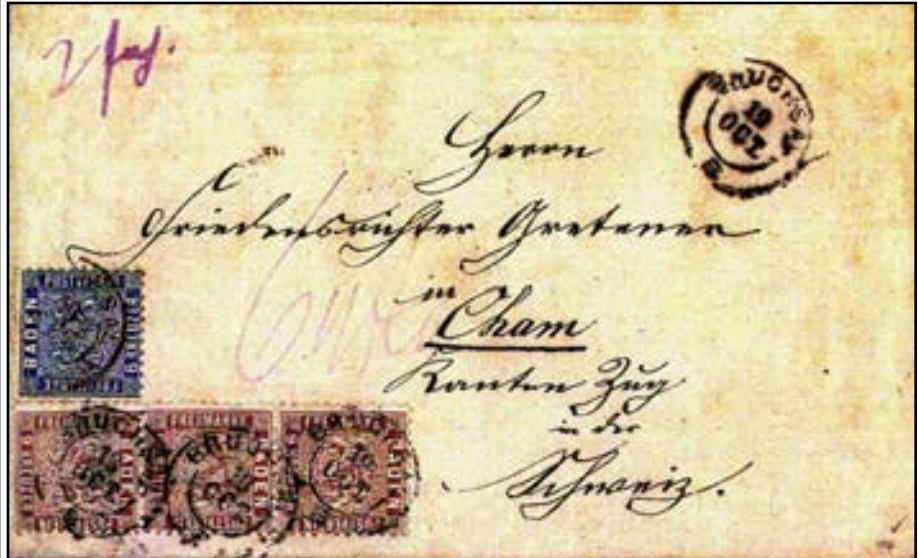 2 fach.
BRUCHSAL
19
OCT.
Herrn
Friedensrichter Gretener
in
Cham
Kanton Zug
in der
Schweiz.
BADEN
FREIMARKE
BRUCHSAL
OCT
BRUCHSAL
OCT
BRUCHSAL
OCT